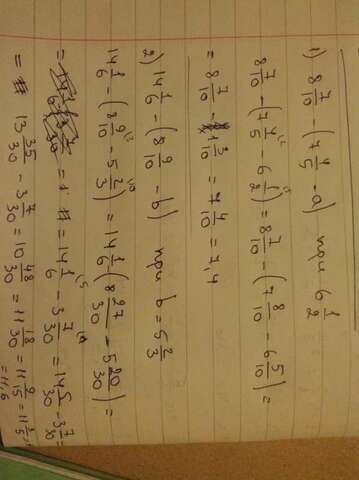 1) 8 7/10 - (7 4/5 - a) при 6 1/2
8 7/10 - (7 4/5 - 6 1/2) = 8 7/10 - (7 8/10 - 6 5/10) =
= 8 7/10 - 1 3/10 = 7 4/10 = 7,4
2) 14 1/6 - (8 9/10 - b) при b = 5 2/3
14 1/6 - (8 9/10 - 5 2/3) = 14 1/6 - (8 27/30 - 5 20/30) =
= 14 1/6 - 3 7/30 = 14 5/30 - 3 7/30 =
= 13 35/30 - 3 7/30 = 10 48/30 = 11 18/30 = 11 9/15 = 11 3/5 =
= 11,6